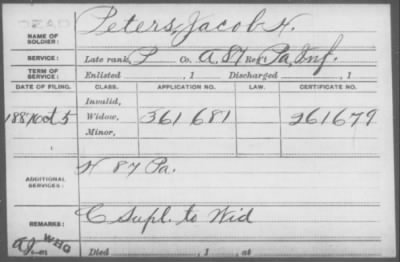 DEAD
NAME OF SOLDIER: Peters, Jacob H.
SERVICE: Late rank, P Co. A, 87 Reg't Pa. Inf.
TERM OF SERVICE: Enlisted , 1 Discharged , 1
DATE OF FILING. CLASS. APPLICATION NO. LAW. CERTIFICATE NO.
Invalid,
1887 Oct 5 Widow, 361681 261679
Minor,
ADDITIONAL SERVICES: H 87 Pa.
REMARKS: C Supl. to Wid
WHG
Died , 1 , at